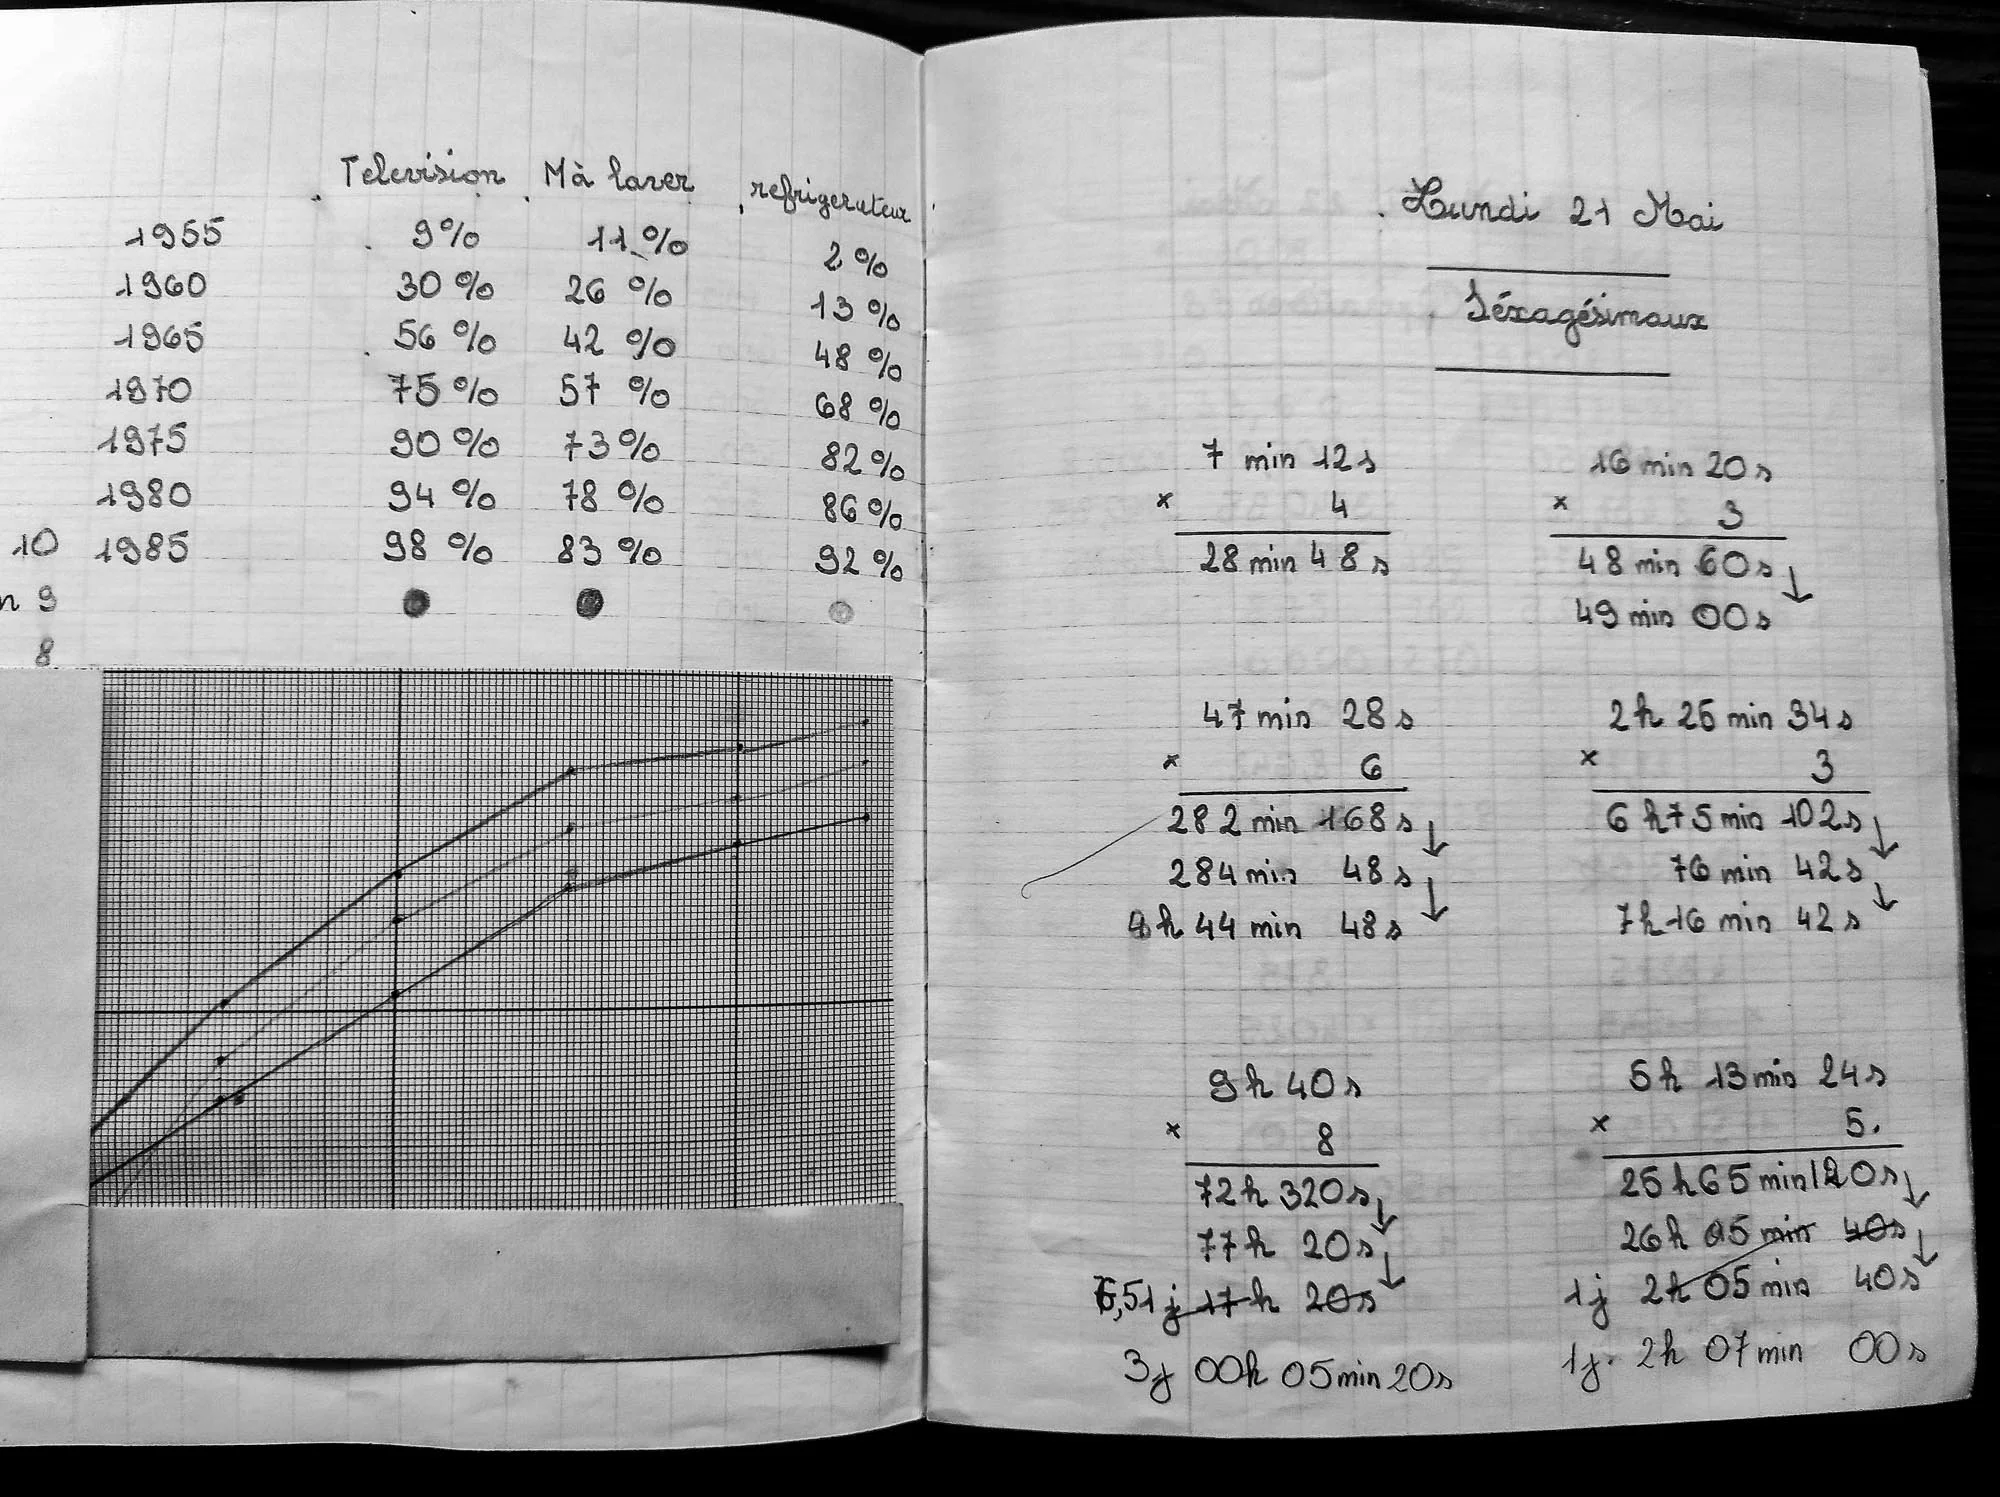 Television M à laver refrigerateur
1955 9% 11% 2%
1960 30% 26% 13%
1965 56% 42% 48%
1970 75% 57% 68%
1975 90% 73% 82%
1980 94% 78% 86%
10 1985 98% 83% 92%
n 9
8
Lundi 21 Mai
Séxagésimaux
7 min 12s
× 4
28 min 48s
16 min 20s
× 3
48 min 60s
49 min 00s
47 min 28s
× 6
282 min 168s
284 min 48s
4h 44 min 48s
2h 25 min 34s
× 3
6h 75 min 102s
76 min 42s
7h 16 min 42s
9h 40s
× 8
72h 320s
77h 20s
,51j 17h 20s
3j 00h 05min 20s
5h 13min 24s
× 5.
25h 65min 120s
26h 05 min 40s
1j 2h 05 min 40s
1j. 2h 07min 00s